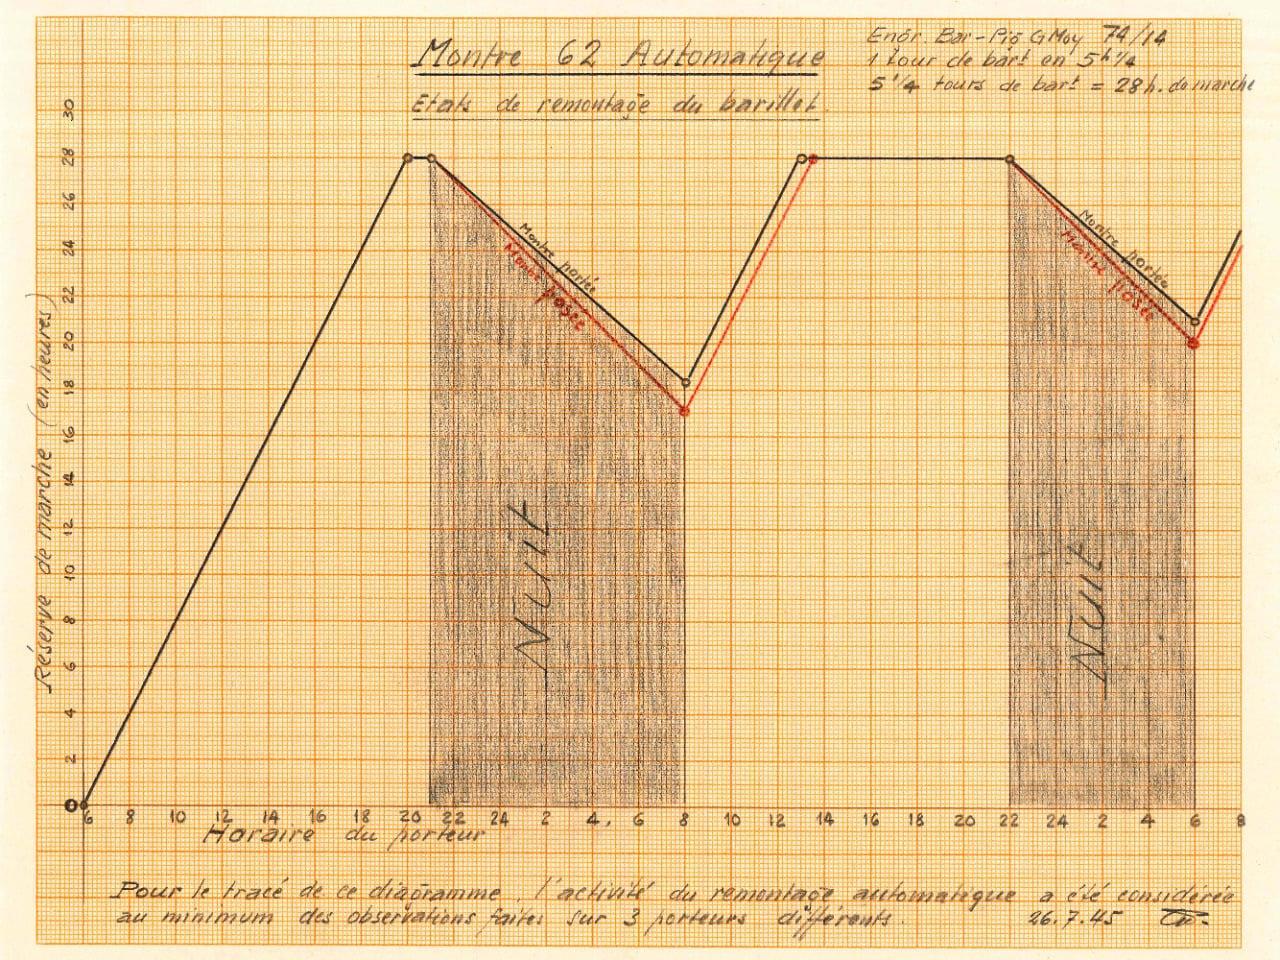 Montre 62 Automatique
Etats de remontage du barillet.
Enår. Bar-Pig GMoy 74/14
1 tour de bart en 5h 1/4
5 1/4 tours de bart = 28 h. de marche
Réserve de marche (en heures)
30
28
26
24
22
20
18
16
14
12
10
8
6
4
2
0
Montre portée
Montre posée
Nuit
Montre portée
Montre posée
Nuit
6 8 10 12 14 16 18 20 22 24 2 4 6 8 10 12 14 16 18 20 22 24 2 4 6 8
Horaire du porteur
Pour le tracé de ce diagramme, l'activité du remontage automatique a été considérée
au minimum des observations faites sur 3 porteurs différents. 26.7.45